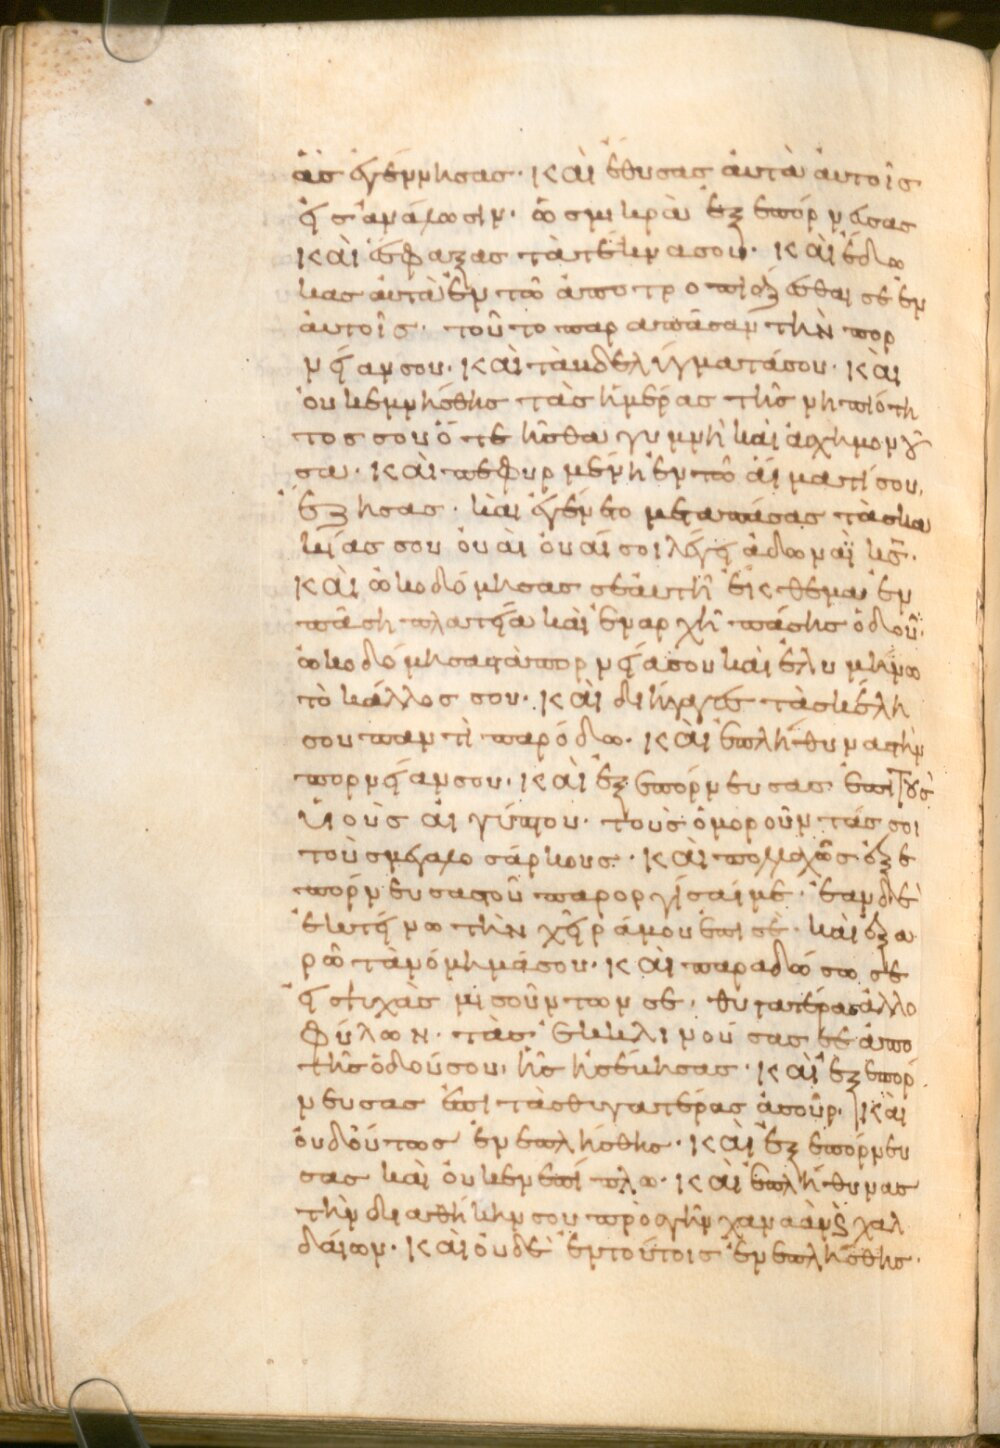 ἃς ἐγέννησας· καὶ ἔθυσας ἀυτὰ ἀυτοῖς
εἰς ἀνάλωσιν· ὡς μικρὰ ἐξεπόρνευσας
καὶ ἔσφαξας τὰ τέκνα σου· καὶ ἔδω
κας ἀυτὰ ἐν τῶ ἀποτροπιάζεσθαί σε ἐν
ἀυτοῖς· τοῦτο παρα πᾶσαν τὴν πορ
νείαν σου· καὶ τὰ βδελύγματά σου· καὶ
ὀυκ ἐμνήσθης τὰς ἡμέρας τῆς νηπιότη
τος σου ὅτε ἦσθα γυμνὴ καὶ ἀσχημονοῦ
σα· καὶ πεφυρμένη ἐν τῶ ἅιματί σου,
ἔζησας· καὶ ἐγένετο μετα πάσας τὰς κα
κίας σου ὀυαὶ ὀυαί σοι λέγει ἀδωναῒ κς·
καὶ ὠκοδόμησας σεαυτῆ ἔκθεμα ἐν
πάση πλατεία καὶ ἐν αρχῆ πάσης ὁδοῦ·
ὠκοδόμησας τὰ πορνεῖα σου καὶ ἐλυμήνω
τὸ κάλλος σου· καὶ διήγαγες τὰ σκέλη
σου παντὶ παρόδω· καὶ ἐπλήθυνας τὴν
πορνείαν σου· καὶ ἐξεπόρνευσας ἐπὶ τοὺς
ὑιοὺς ἀιγύπτου· τοὺς ὁμοροῦντάς σοι
τοὺς μεγαλοσάρκους· καὶ πολλαχῶς ἐξε
πόρνευσας τοῦ παροργίσαί με· ἐαν δὲ
ἐκτείνω τὴν χεῖρά μου ἐπι σὲ· καὶ ἐξα
ρῶ τὰ νόμημά σου· καὶ παραδώσω σε
εἰς ψυχὰς μισούντων σε· θυγατέρας ἀλλο
φύλων· τὰς ἐκκλινούσας σε ἀπο
τῆς ὁδού σου, ἧς ἠσέβησας· καὶ ἐξεπόρ
νευσας ἐπὶ τὰς θυγατέρας ἀσούρ· καὶ
ὀυδ ὀύτως ἐνεπλήσθης· καὶ ἐξεπόρνευ
σας καὶ ὀυκ ενεπίπλω· καὶ ἐπλήθυνας
τὴν διαθήκην σου πρὸς γῆν χαναὰν καὶ χαλ
δαίων· καὶ ὀυδὲ ἐν τούτοις ἐνεπλήσθης·